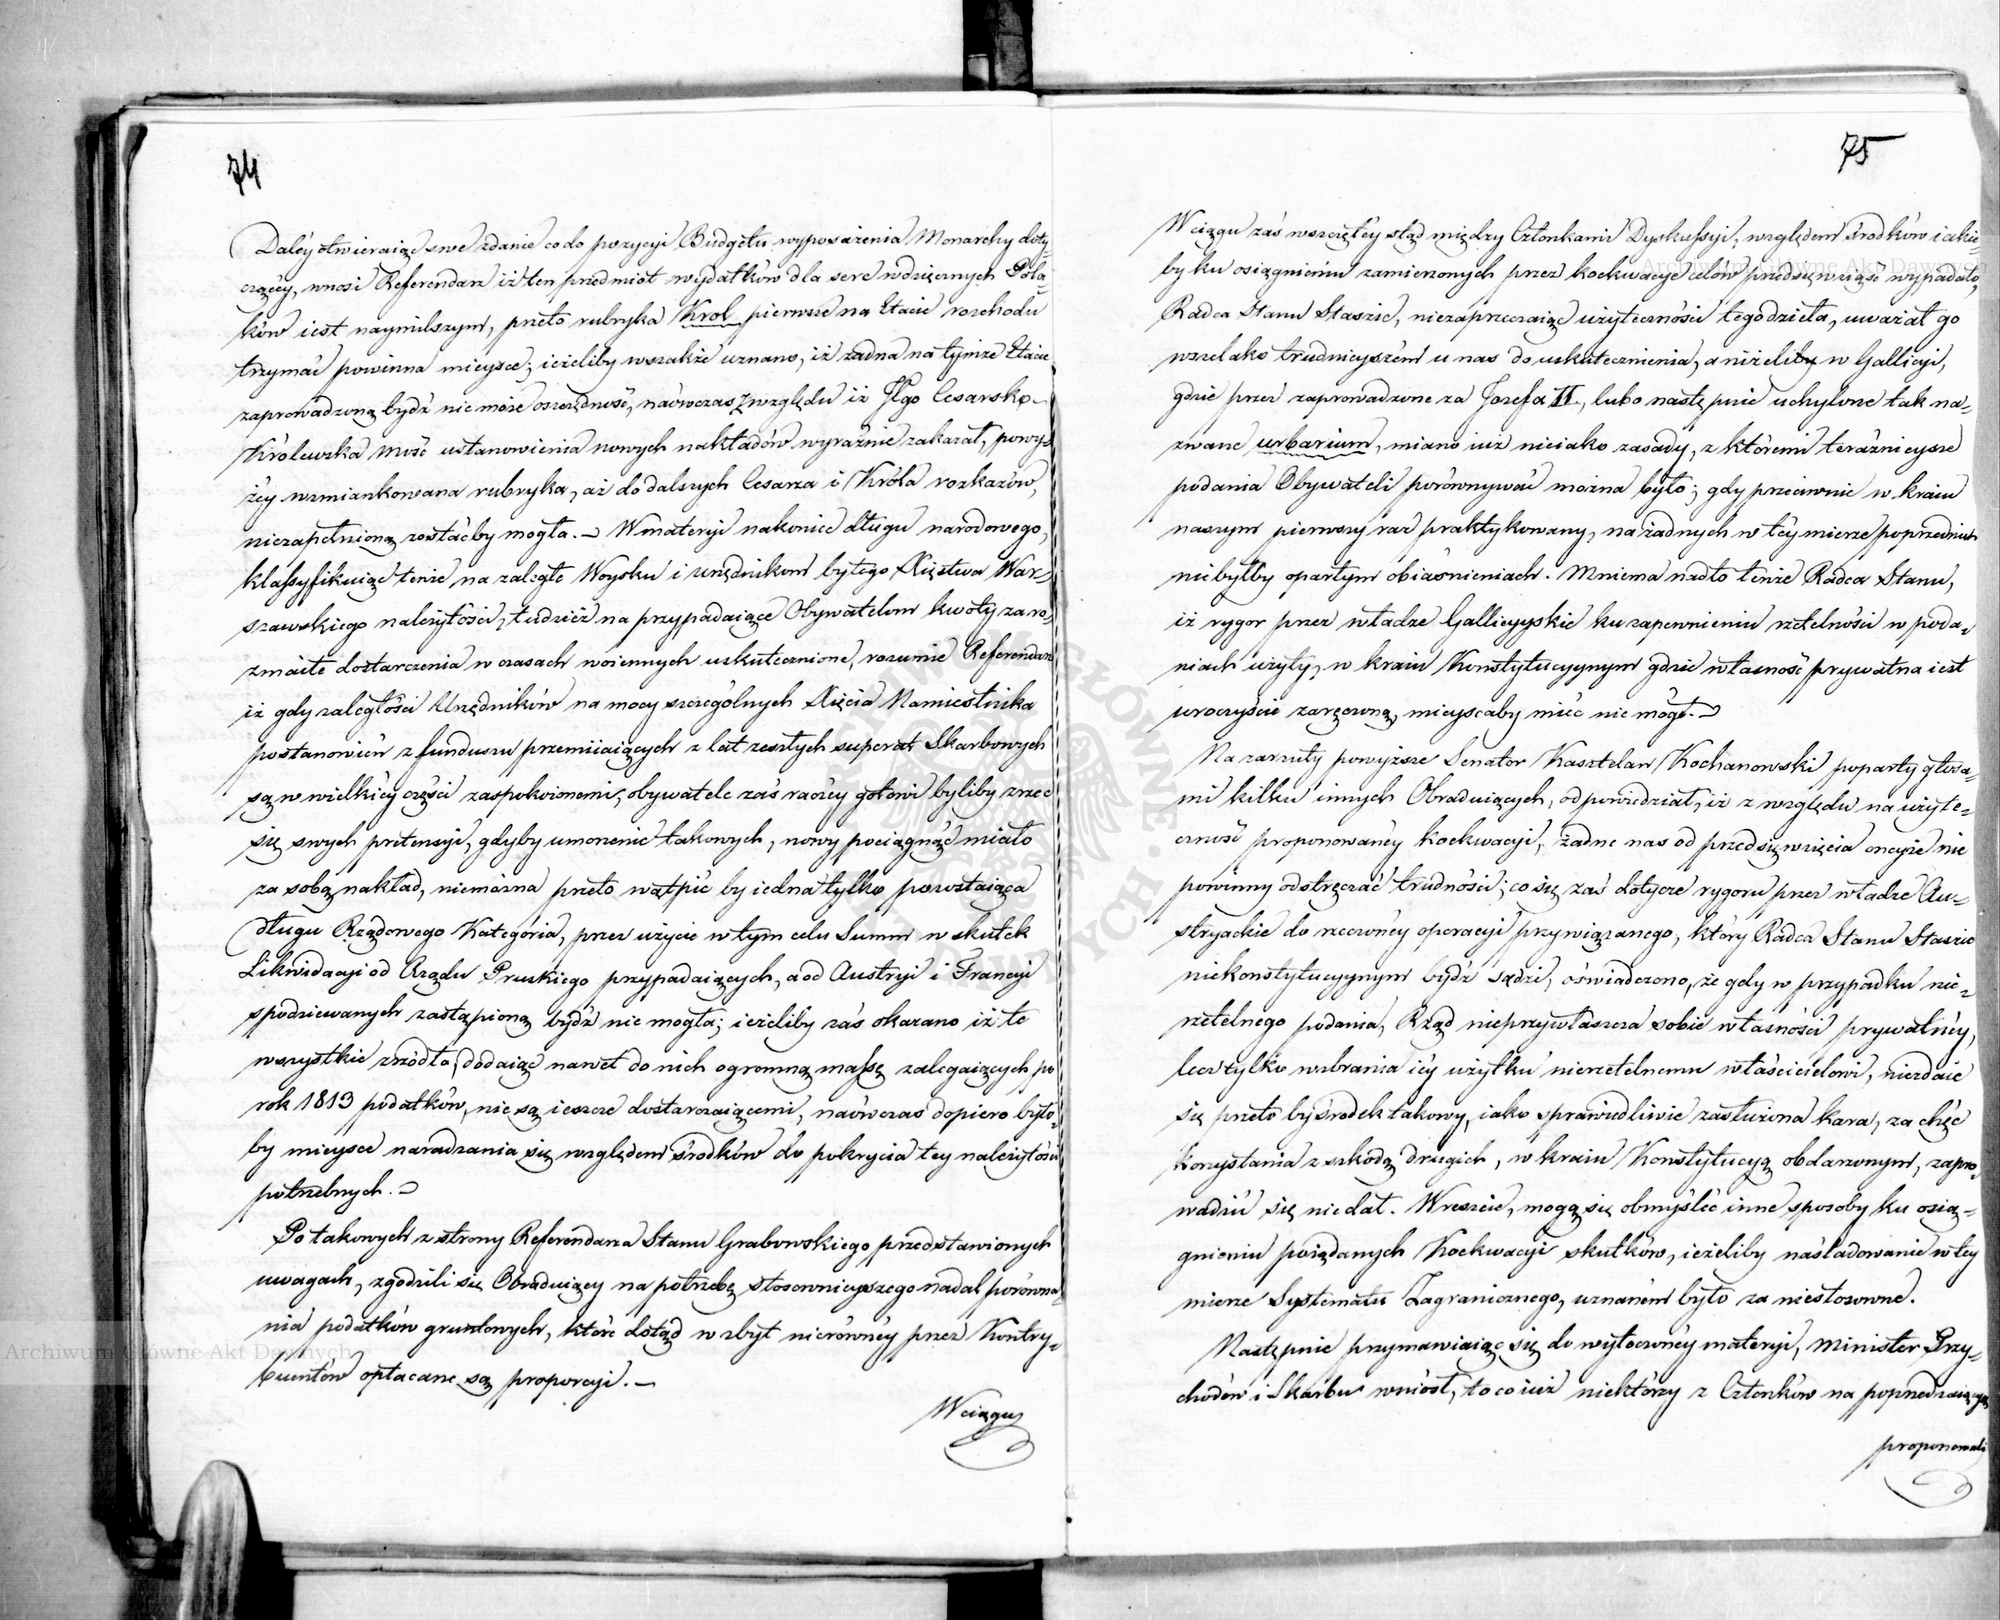 74
Daléy otwieraiąc swe zdanie co do pozycyi Budgetu wyposażenia Monarchy doty-
czącéy, wnosi Referendarz iż ten przedmiot wydatków dla serc wdzięcznych Pola-
ków iest naymilszym, przeto rubryka Krol pierwsze na Etacie rozchodu
trzymać powinna mieysce; ieżeliby wszakże uznano, iż żadna na tymże Etacie
zaprowadzoną bydź nie może oszczędność, naówczas z względu iż JJgo Cesarsko-
Królewska Mość ustanowienia nowych nakładów wyraźnie zakazał, powy-
żéy wzmiankowana rubryka, aż do dalszych Cesarza i Króla rozkazów,
niezapełnioną zostać by mogła. – W materyi nakoniec długu narodowego,
klassyfikuiąc tenże na zaległe Woysku i urzędnikom byłego Xięstwa War-
szawskiego należytości, tudzież na przypadaiące Obywatelom kwoty za ro-
zmaite dostarczenia w czasach woiennych uskutecznione, rozumie Referendarz
iż gdy zaległości Urzędników na mocy szczególnych Xięcia Namiestnika
postanowień z funduszu przemiiaiących z lat zeszłych superat Skarbowych
są w wielkiéy części zaspokoionemi, obywatele zaś raczéy gotowi byliby zrzec
się swych pretensyi, gdyby umorzenie takowych, nowy pociągnąć miało
za sobą nakład, niemożna przeto wątpić by iedna tylko pozostaiąca
długu Rządowego Kategoria, przez użycie w tym celu Summ w skutek
Likwidacyi od Rządu Pruskiego przypadaiących, a od Austryi i Francyi
spodziewanych zastąpioną bydź nie mogła; ieżeliby zaś okazano iż te
wszystkie zrzódła, dodaiąc nawet do nich ogromną massę zalegaiących po
rok 1813 podatków, nie są ieszcze dostarczaiącemi, naówczas dopiero było-
by mieysce naradzania się względem środków do pokrycia tey należytości
potrzebnych. –
Po takowych z strony Referendarza Stanu Grabowskiego przedstawionych
uwagach, zgodzili się Obraduiący na potrzebę stosownieyszego nadal porówna-
nia podatków gruntowych, które dotąd w zbyt nierównéy przez Kontry-
buentów opłacane są proporcyi. –
W ciągu
75
W ciągu zaś wszczętéy stąd między Członkami Dyskussyi, względem środków iakie-
by ku osiągnieniu zamierzonych przez koekwacyę celów przedsięwziąść wypadało,
Radca Stanu Staszic, niezaprzeczaiąc użyteczności tego dzieła, uważał go
wszelako trudnieyszém u nas do uskutecznienia, aniżeliby w Gallicyi,
gdzie przez zaprowadzone za Jozefa II, lubo następnie uchylone tak na-
zwane urbarium, miano iuż nieiako zasady, z któremi teraźnieysze
podania Obywateli porównywać można było; gdy przeciwnie w kraiu
naszym pierwszy raz praktykowany, na żadnych w téy mierze poprzednich
niebyłby opartym obiaśnieniach. Mniema nadto tenże Radca Stanu,
iż rygor przez władze Gallicyyskie ku zapewnieniu rzetelności w poda-
niach użyty, w kraiu Konstytucyynym gdzie własność prywatna iest
uroczyście zaręczoną, mieyscaby mieć nie mógł. –
Na zarzuty powyższe Senator Kasztelan Kochanowski poparty głosa-
mi kilku innych Obraduiących, odpowiedział, iż z względu na użyte-
czność proponowanéy koekwacyi, żadne nas od przedsięwzięcia oneyże nie
powinny odstręczać trudności; co się zaś dotycze rygoru przez władze Au-
stryackie do rzeczonéy operacyi przywiązanego, który Radca Stanu Staszic
niekonstytucyynym bydź sądzi, oświadczono, że gdy w przypadku nie-
rzetelnego podania, Rząd nieprzywłaszcza sobie własności prywatnéy,
lecz tylko wzbrania iéy użytku nierzetelnemu właścicielowi, niezdaie
się przeto by środek takowy, iako sprawiedliwie zasłużona kara, za chęć
korzystania z szkodą drugich, w kraiu Konstytucyą obdarzonym, zapro-
wadzić się nie dał. Wreszcie, mogą się obmyśléć inne sposoby ku osią-
gnieniu pożądanych Koekwacyi skutków, ieżeliby naśladowanie w tey
mierze Systematu Zagranicznego, uznaném było za niestosowne.
Następnie przymawiaiąc się do wytoczonéy materyi, Minister Przy-
chodów i Skarbu wniósł, to co iuż niektórzy z Członków na poprzedzaiącym
proponowali